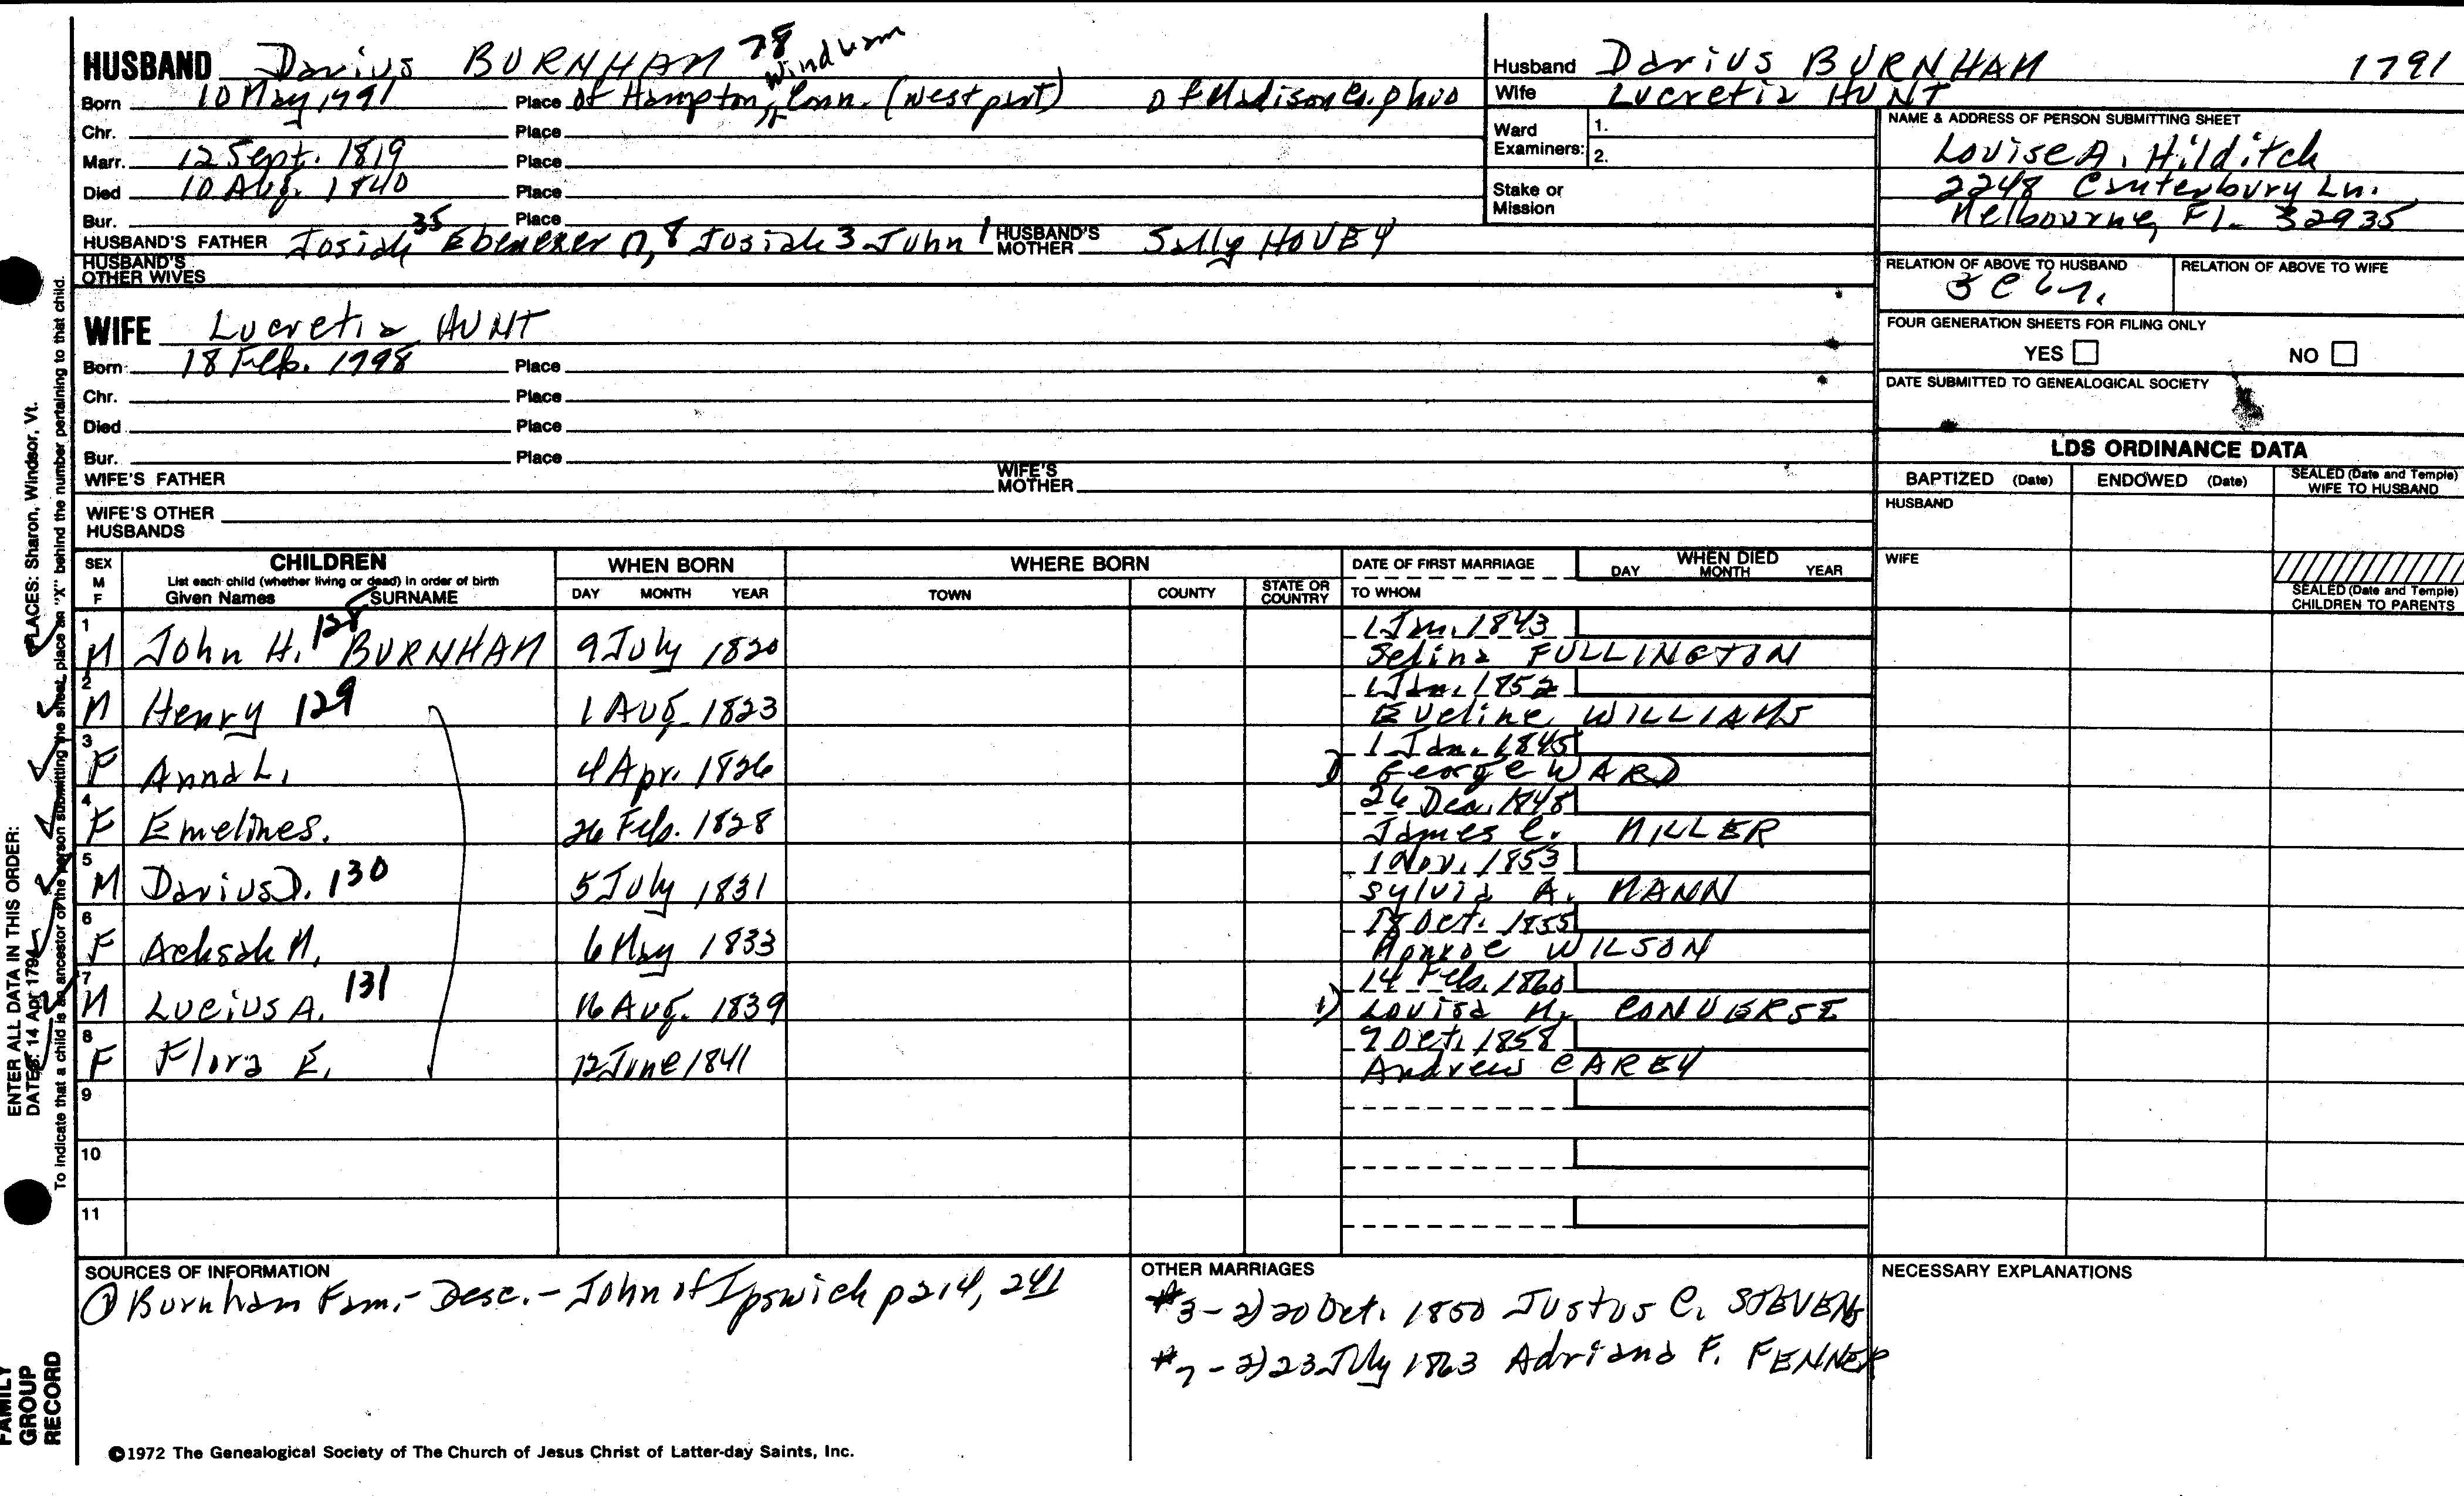 HUSBAND Darius BURNHAM 78 Windham
Born 10 May 1791 Place of Hampton, Conn. (west part) of Madison Co. Ohio
Chr. Place
Marr. 12 Sept. 1819 Place
Died 10 Aug. 1840 Place
Bur. Place
HUSBAND'S FATHER Josiah 35 Ebenezer 17, 8 Josiah 3 John 1 HUSBAND'S MOTHER Sally HOVEY
HUSBAND'S OTHER WIVES
Husband Darius BURNHAM 1791
Wife Lucretia HUNT
Ward Examiners: 1.
2.
Stake or Mission
NAME & ADDRESS OF PERSON SUBMITTING SHEET
Louise A. Hilditch
2248 Canterbury Ln.
Melbourne, Fl. 32935
RELATION OF ABOVE TO HUSBAND RELATION OF ABOVE TO WIFE
WIFE Lucretia HUNT
Born 18 Feb. 1798 Place
Chr. Place
Died Place
Bur. Place
WIFE'S FATHER WIFE'S MOTHER
WIFE'S OTHER HUSBANDS
FOUR GENERATION SHEETS FOR FILING ONLY
YES NO
DATE SUBMITTED TO GENEALOGICAL SOCIETY
LDS ORDINANCE DATA
BAPTIZED (Date) ENDOWED (Date) SEALED (Date and Temple) WIFE TO HUSBAND
HUSBAND
WIFE
SEALED (Date and Temple) CHILDREN TO PARENTS
SEX M F CHILDREN WHEN BORN WHERE BORN DATE OF FIRST MARRIAGE WHEN DIED
List each child (whether living or dead) in order of birth DAY MONTH YEAR
Given Names SURNAME DAY MONTH YEAR TOWN COUNTY STATE OR COUNTRY TO WHOM
1 M John H. 128 BURNHAM 9 July 1820 1 Jan. 1843
Selina FULLINGTON
2 M Henry 129 1 Aug. 1823 1 Jan. 1852
Eveline WILLIAMS
3 F Anna L. 4 Apr. 1826 1 Jan. 1845
1) George WARD
4 F Emeline S. 26 Feb. 1828 26 Dec. 1848
James C. MILLER
5 M Darius D. 130 5 July 1831 1 Nov. 1853
Sylvia A. MANN
6 F Achsah M. 6 May 1833 18 Oct. 1855
Monroe WILSON
7 M Lucius A. 131 16 Aug. 1839 14 Feb. 1860
1) Louisa M. CONVERSE
8 F Flora E. 12 June 1841 7 Oct. 1858
Andrew CAREY
9
10
11
SOURCES OF INFORMATION
① Burnham Fam. - Desc. - John of Ipswich p 214, 241
OTHER MARRIAGES
#3 - 2) 20 Oct. 1850 Justus C. STEVENS
#7 - 2) 23 July 1863 Adriana F. FENNER
NECESSARY EXPLANATIONS
©1972 The Genealogical Society of The Church of Jesus Christ of Latter-day Saints, Inc.
ENTER ALL DATA IN THIS ORDER:
DATES: 14 Apr 1794
PLACES: Sharon, Windsor, Vt.
To indicate that a child is an ancestor of the person submitting the sheet, place an "X" behind the number pertaining to that child.
FAMILY GROUP RECORD